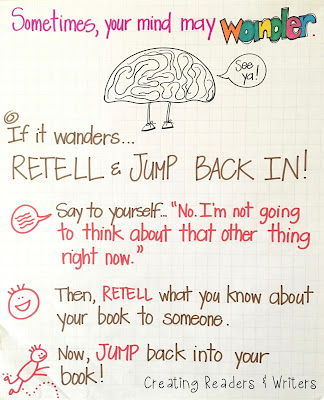 Sometimes, your mind may wander.
See ya!
If it wanders...
RETELL & JUMP BACK IN!
Say to yourself... "No. I'm not going
to think about that other thing
right now."
Then, RETELL what you know about
your book to someone.
Now, JUMP back into your
book!
Creating Readers & Writers